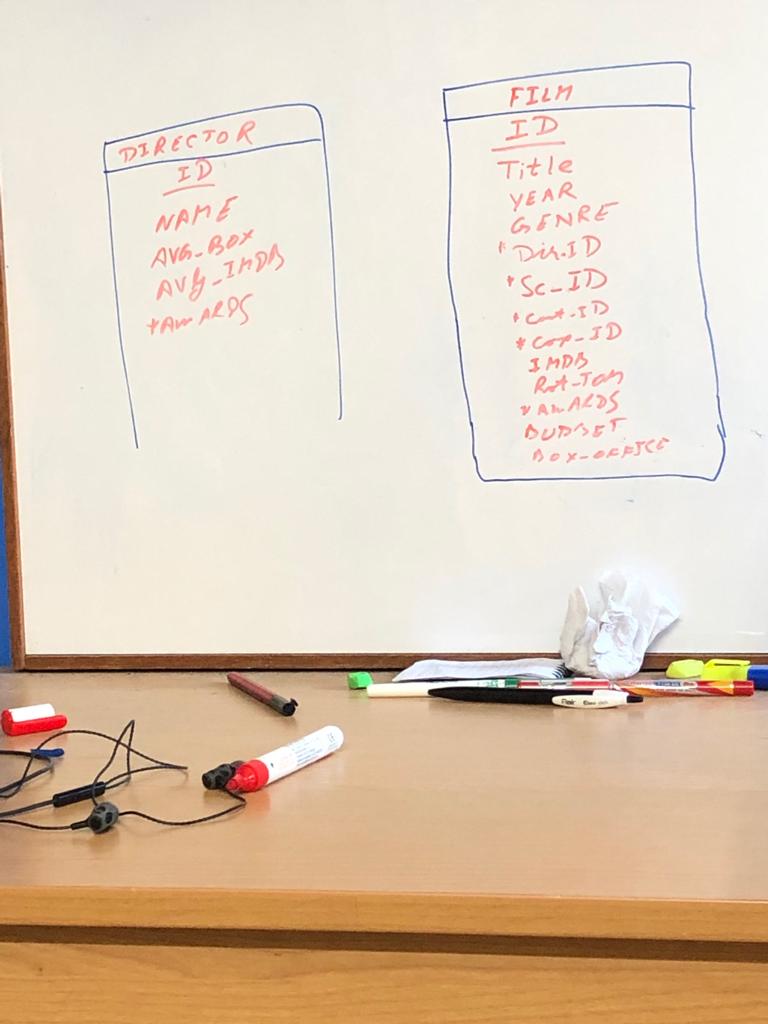 DIRECTOR
ID
NAME
AVG_BOX
AVG_IMDB
*AWARDS
FILM
ID
Title
YEAR
GENRE
*Dir_ID
*Sc_ID
*Cont_ID
*Com_ID
IMDB
Rot_Tom
*AWARDS
BUDGET
BOX_OFFICE
Flair